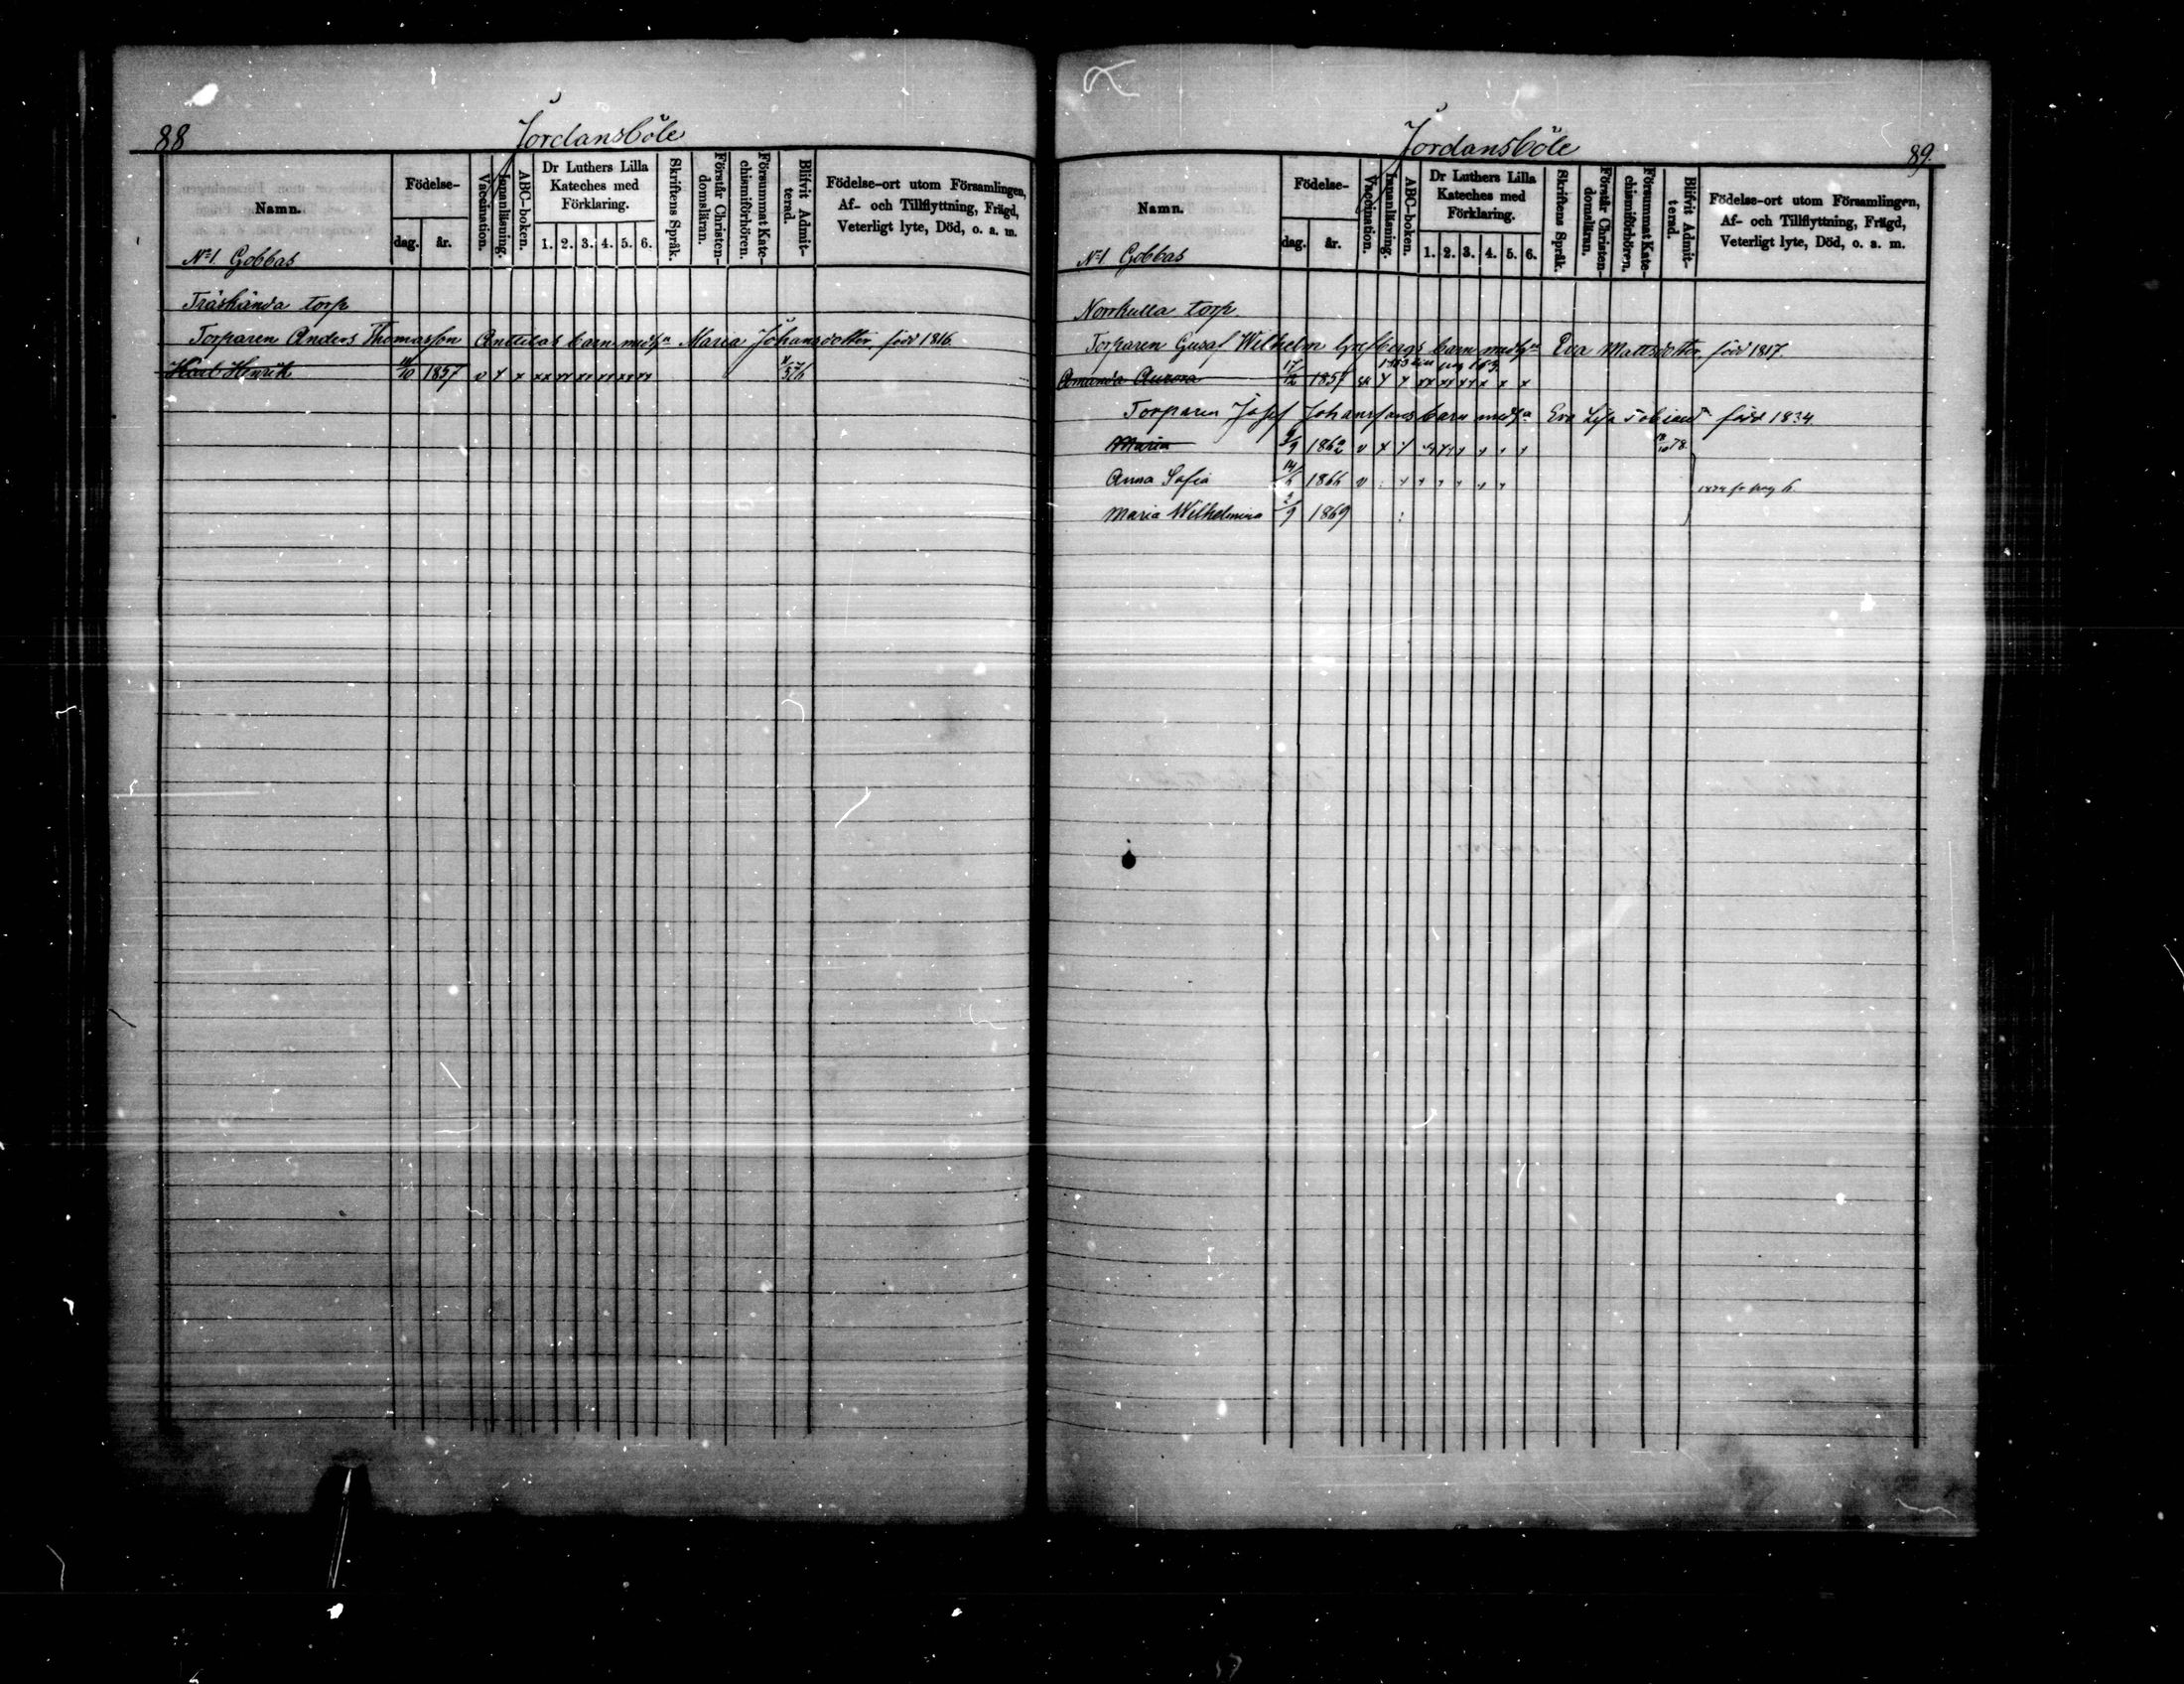 88
Jordansböle
Namn.
Födelse-
dag. år.
Vaccination.
Innanläsning.
ABC-boken.
Dr Luthers Lilla Kateches med Förklaring.
1. 2. 3. 4. 5. 6.
Skriftens Språk.
Förstår Christendomsläran.
Försummat Katechismiförhören.
Blifvit Admitterad.
Födelse-ort utom Församlingen,
Af- och Tillflyttning, Frägd,
Veterligt lyte, Död, o. a. m.
No 1 Gobbas
Träskända torp
Torparen Anders Thomasson Anttilas barn med h:n Maria Johansdotter född 1816
Karl Henrik 10 1857 v x x xx xx xx xx xx xx
Jordansböle
89.
Namn.
Födelse-
dag. år.
Vaccination.
Innanläsning.
ABC-boken.
Dr Luthers Lilla Kateches med Förklaring.
1. 2. 3. 4. 5. 6.
Skriftens Språk.
Förstår Christendomsläran.
Försummat Katechismiförhören.
Blifvit Admitterad.
Födelse-ort utom Församlingen,
Af- och Tillflyttning, Frägd,
Veterligt lyte, Död, o. a. m.
No 1 Gobbas
Norrkulla torp.
Torparen Gusaf Wilhelm barn med Eva Mattsdotter, född 1817.
Amanda Aurora 17/12 1857 x x xx xx xx x x x
Torparen Josef Johanssons barn med Eva Lisa född 1834
Maria 9 1862 v x
Anna Sofia 14 1866 v
Maria Wilhelmina 2/9 1869